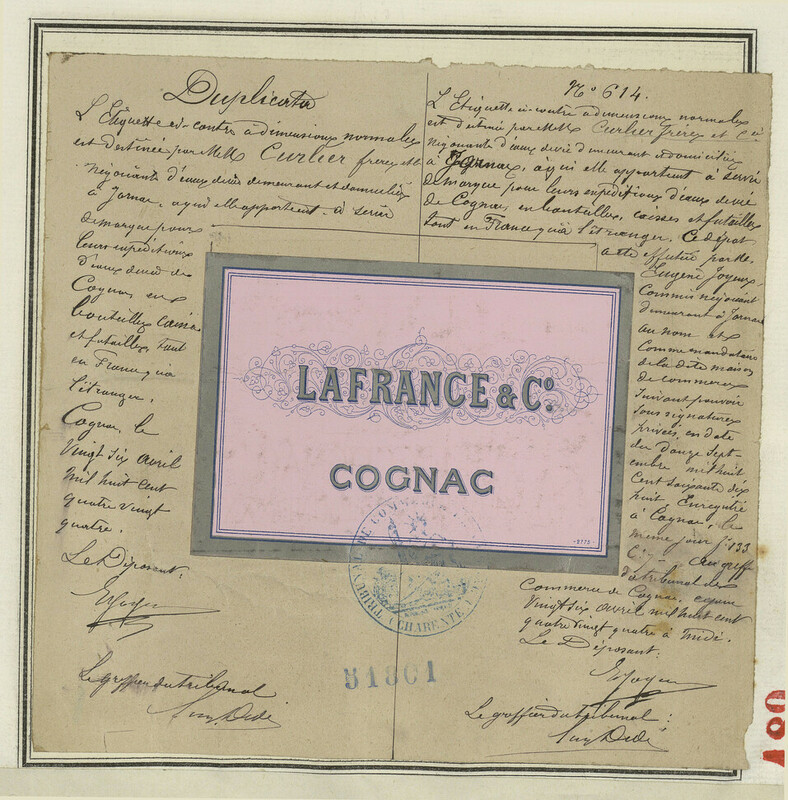 Duplicata
L'Etiquette ci-contre a dimensions normales
est destinée par MM Curlier frères et
négociants d'eaux de vie demeurant et domiciliés
à Jarnac, à qui elle appartient à servir
de marque pour
leurs expéditions
d'eaux de vie de
Cognac en
bouteilles caisses
et futailles, tant
en France qu'à
l'étranger.
Cognac, le
Vingt six avril
mil huit cent
quatre vingt
quatre.
Le Déposant,
Le greffier du tribunal
No 614.
L'Etiquette ci-contre a dimensions normales
est destinée par MM Curlier frères et Cie
négociants d'eaux de vie demeurant et domiciliés
à Jarnac, à qui elle appartient à servir
de marque pour leurs expéditions d'eaux de vie
de Cognac, en bouteilles, caisses et futailles
tant en France qu'à l'étranger. Ce dépôt
a été effectué par M.
Eugène Joyeux,
Commis négociant
demeurant à Jarnac
au nom et
comme mandataire
de la dite maison
de commerce
suivant pouvoir
sous signatures
privées, en date
du douze Sept-
embre mil huit
cent soixante dix
huit Enregistré
à Cognac, le
même jour fo 133
Au greffe
du tribunal de
Commerce de Cognac,
Vingt six avril mil huit cent
quatre vingt quatre à midi.
Le Déposant:
Le greffier du tribunal:
LAFRANCE & Co.
COGNAC
TRIBUNAL DE COMMERCE
(CHARENTE)
51801